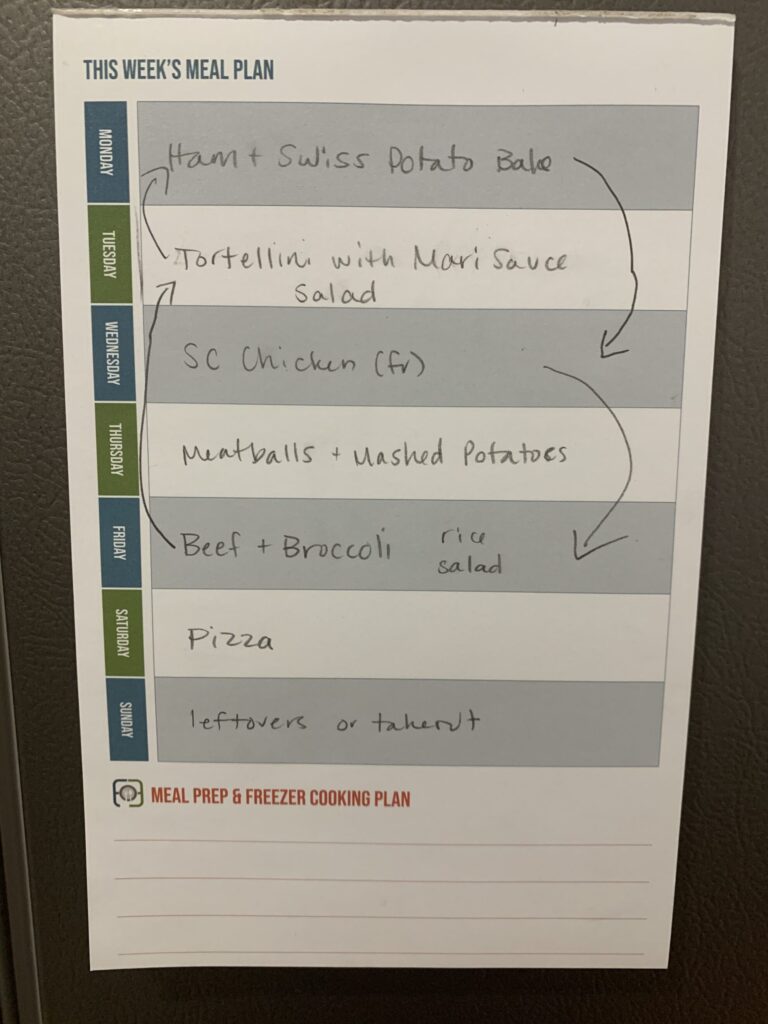 THIS WEEK'S MEAL PLAN
MONDAY
Ham + Swiss Potato Bake
TUESDAY
Tortellini with Mari Sauce
Salad
WEDNESDAY
SC Chicken (fr)
THURSDAY
Meatballs + Mashed Potatoes
FRIDAY
Beef + Broccoli rice
salad
SATURDAY
Pizza
SUNDAY
leftovers or takeout
MEAL PREP & FREEZER COOKING PLAN